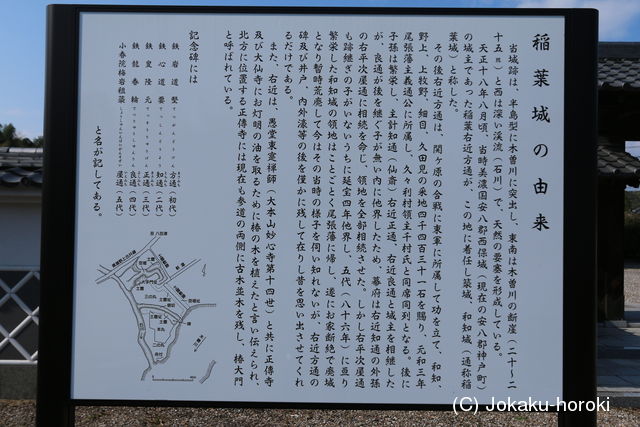 稲葉城の由来
当城跡は、半島型に木曽川に突出し、東南は木曽川の断崖（二十～二
十五㍍）と西は深い渓流（石川）で、天然の要塞を形成している。
天正十八年八月頃、当時美濃国安八郡西保城（現在の安八郡神戸町）
の城主であった稲葉右近方通が、この地に着任し築城、和知城（通称稲
葉城）と称した。
その後右近方通は、関ヶ原の合戦に東軍に所属して功を立て、和知・
野上、上牧野、細目、久田見の采地四千四百三十一石を賜り、元和三年
尾張藩主義通公に所属し、久々利村領主千村氏と同席同列となる。後に
子孫は繁栄し、主計知通（仙斎）右近正通、右近良通と城主を相継した
が、良通が後を継ぐ子が無い内に他界したため、幕府は右近知通の外孫
の右平次屋通に相続を命じ、領地を全部相続させた。しかし右平次屋通
も跡継ぎの子がいないうちに延宝四年他界し、五代（八十六年）に亘り
繁栄した和知城の領地はことごとく尾張藩に帰し、遂にお家断絶で廃城
となり暫時荒廃して今はその当時の様子を伺い知れないが、右近方通の
碑及び井戸、内外濠等の後を僅かに残して在りし昔を思い出させてくれ
るだけである。
また、右近は、愚堂東寔禅師（大本山妙心寺第十四世）と共に正傳寺
及び大仙寺にお灯明の油を取るために椿の木を植えたと言い伝えられ、
北方に位置する正傳寺には現在も参道の両側に古木並木を残し、椿大門
と呼ばれている。
記念碑には
鉄岩道堅 方通（初代）
鉄心道要 知通（二代）
鉄皇隆元 正通（三代）
鉄龍春輪 良通（四代）
小春院梅岩祖築 屋通（五代）
と名が記してある。
(C) Jokaku-horoki